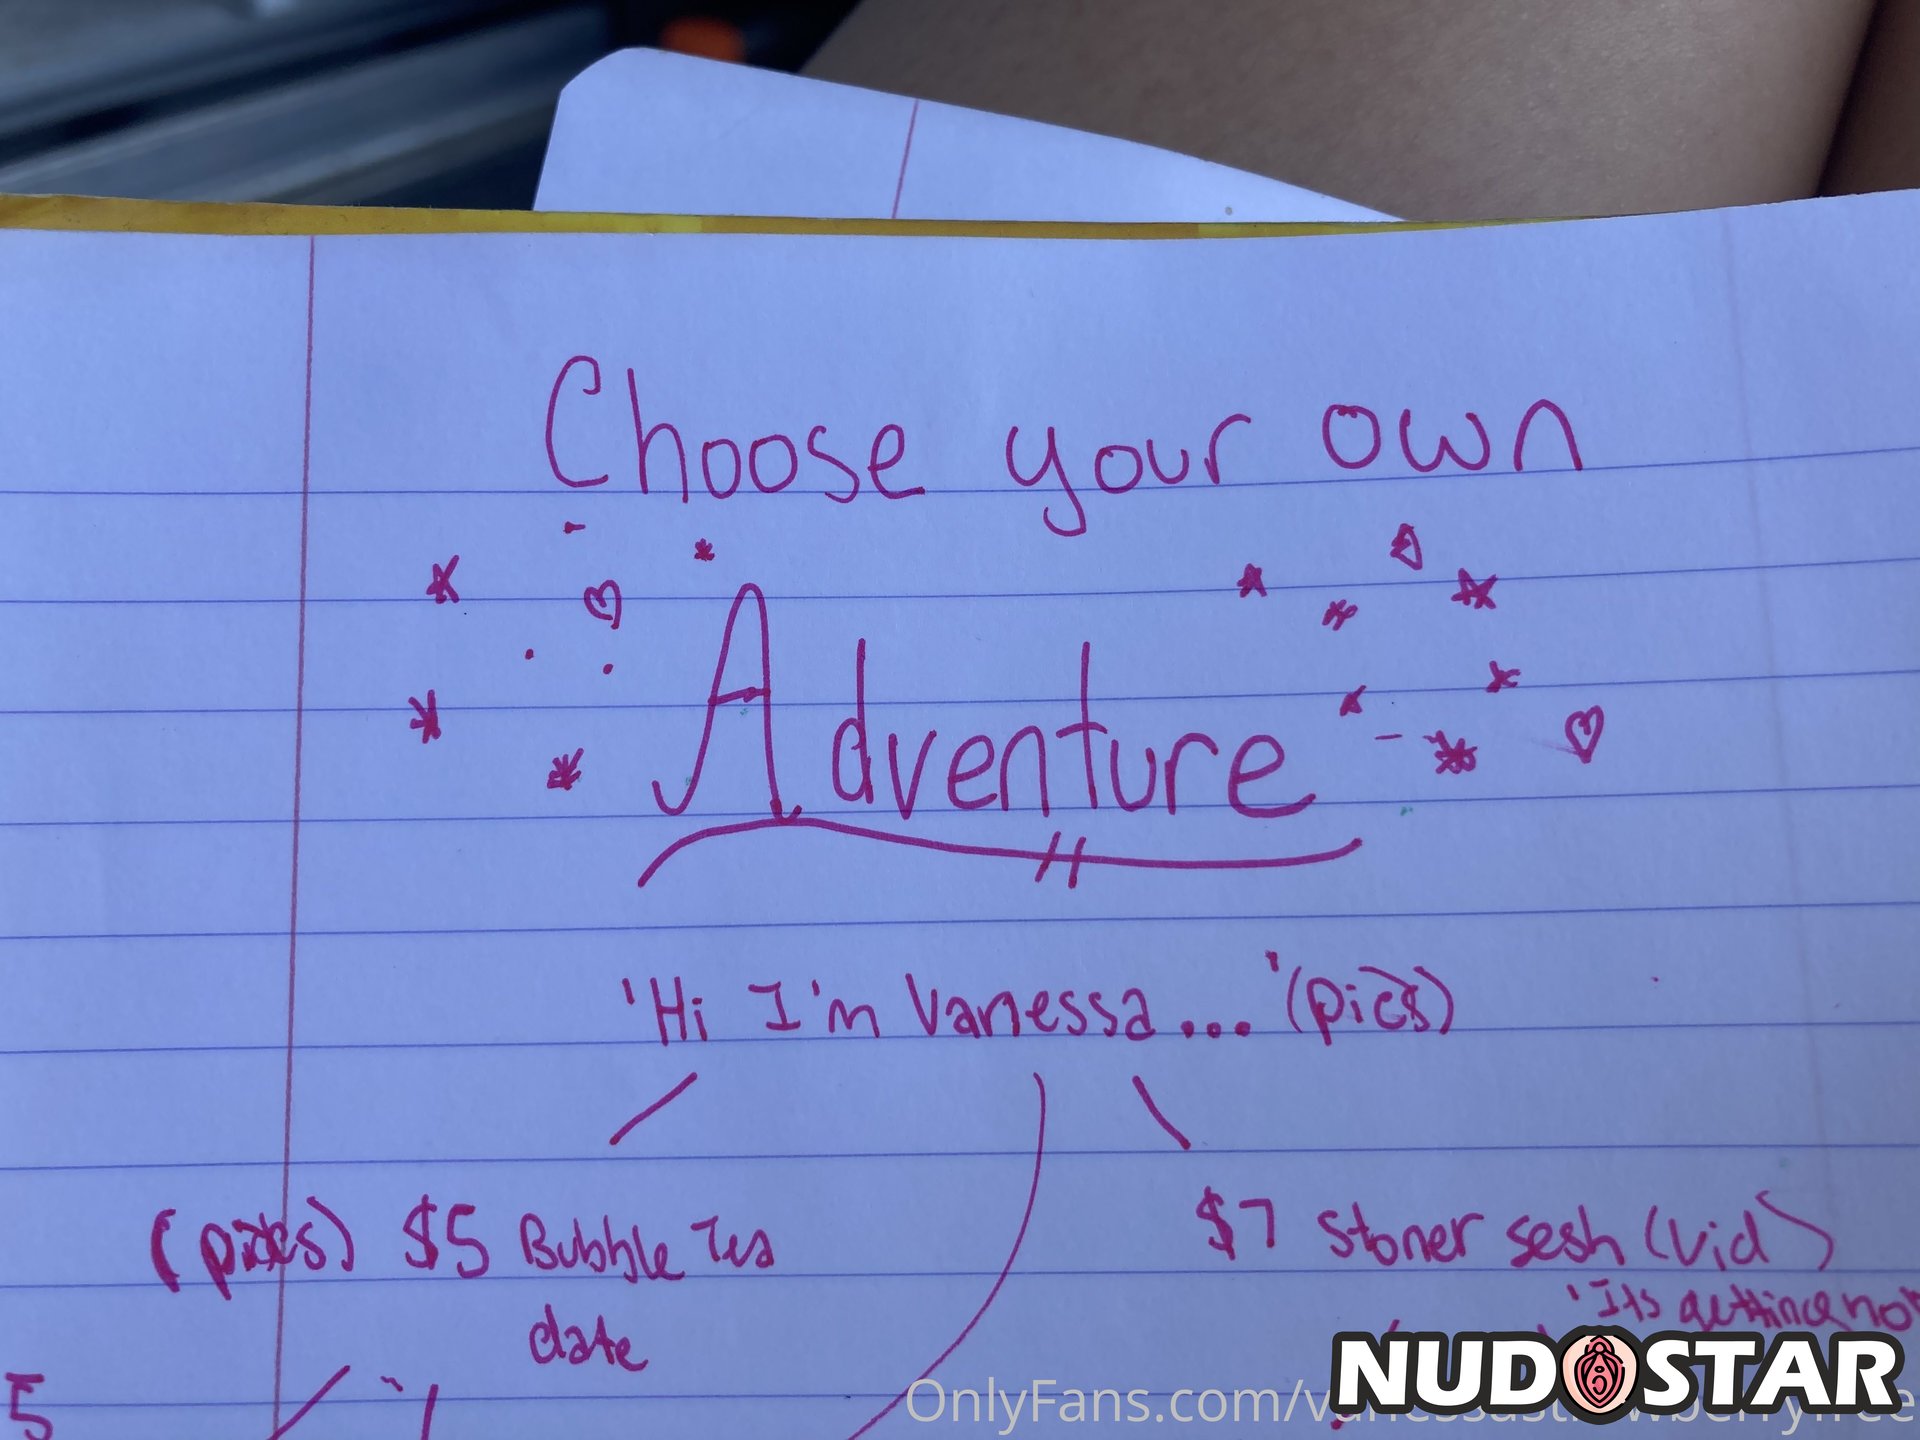 Choose your own
Adventure
'Hi I'm Vanessa...' (pics)
(pics) $5 Bubble Tea
date
$7 Stoner sesh (vid)
'Its getting hot
5
NUDOSTAR
OnlyFans.com/vanessastrawberryfree